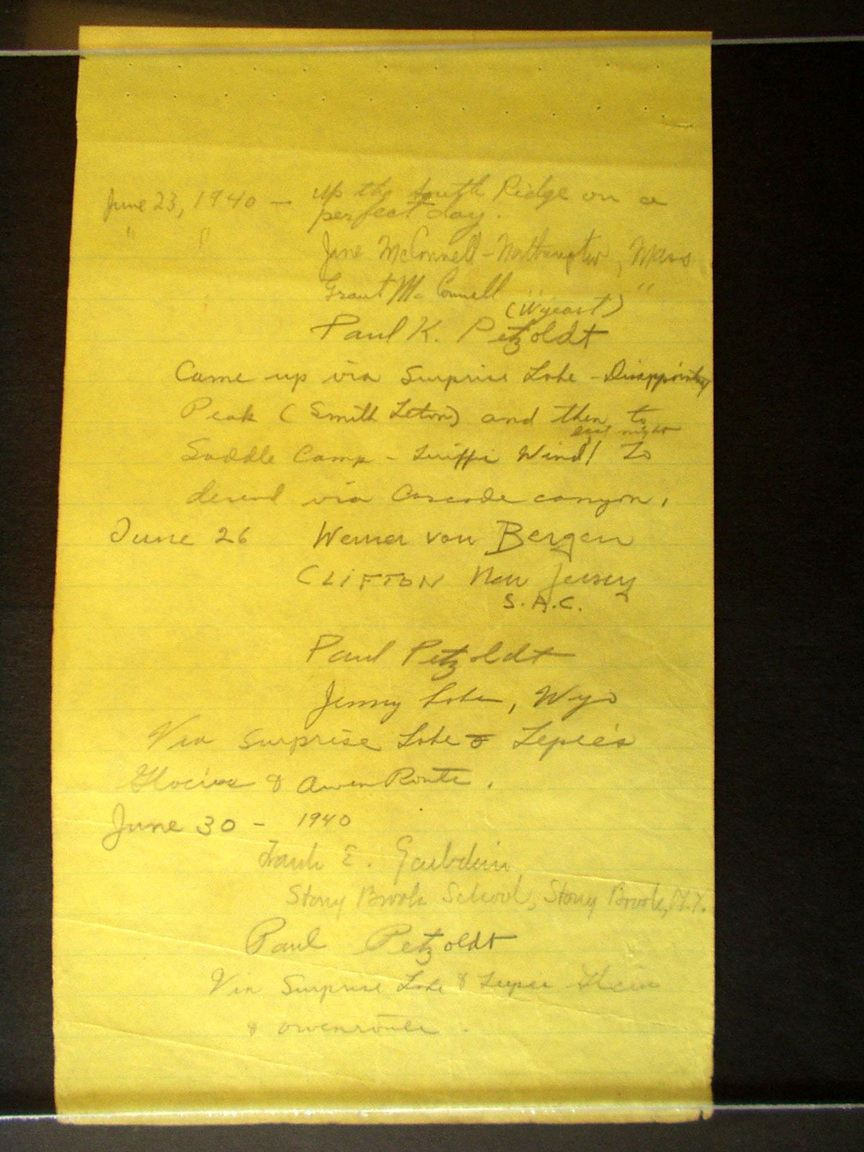 June 23, 1940 — up the south Ridge on a
" " perfect day.
June McConnell - Northampton, Mass
Grant McConnell "
(Wyeast)
Paul K. Petzoldt
Came up via Surprise Lake - Disappointy
Peak (Smith Teton) and then to
last night
Saddle Camp - Wind! To
via Cascade canyon.
June 26 Werner von Bergen
CLIFTON New Jersey
S.A.C.
Paul Petzoldt
Jenny Lake, Wyo
Via Surprise Lake &
& Owen Route.
June 30 - 1940
Frank E. Gaebelein
Stony Brook School, Stony Brook, N.Y.
Paul Petzoldt
Via Surprise Lake &
& owen route.